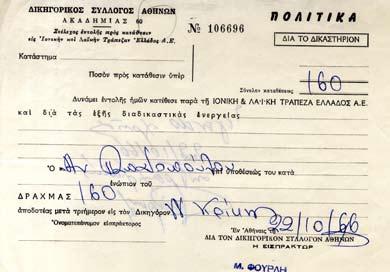 ΔΙΚΗΓΟΡΙΚΟΣ ΣΥΛΛΟΓΟΣ ΑΘΗΝΩΝ
ΑΚΑΔΗΜΙΑΣ 60
Στέλεχος ἐντολῆς πρὸς κατάθεσιν
εἰς Ἰονικὴν καὶ Λαϊκὴν Τράπεζαν Ἑλλάδος Α.Ε.
№ 106696
ΠΟΛΙΤΙΚΑ
ΔΙΑ ΤΟ ΔΙΚΑΣΤΗΡΙΟΝ
Κατάστημα
Ποσὸν πρὸς κατάθεσιν ὑπὲρ
Σύνολον καταθέσεως
160
Δυνάμει ἐντολῆς ἡμῶν κατέθεσε παρὰ τῇ ΙΟΝΙΚΗ & ΛΑΪΚΗ ΤΡΑΠΕΖΑ ΕΛΛΑΔΟΣ Α.Ε.
καὶ διὰ τὰς ἑξῆς διαδικαστικὰς ἐνεργείας
Ὁ Αν Παπαδοπούλου ἐπὶ ὑποθέσεώς του κατὰ
ἐνώπιον τοῦ
ΔΡΑΧΜΑΣ 160
ἀποδοτέας μετὰ τρίμερον εἰς τὸν Δικηγόρον
Ὀνοματεπώνυμον εἰσπράκτορος
Ἐν Ἀθήναις τῇ 22/10/66
ΔΙΑ ΤΟΝ ΔΙΚΗΓΟΡΙΚΟΝ ΣΥΛΛΟΓΟΝ ΑΘΗΝΩΝ
Η ΕΙΣΠΡΑΚΤΩΡ
Μ. ΦΟΥΡΛΗ